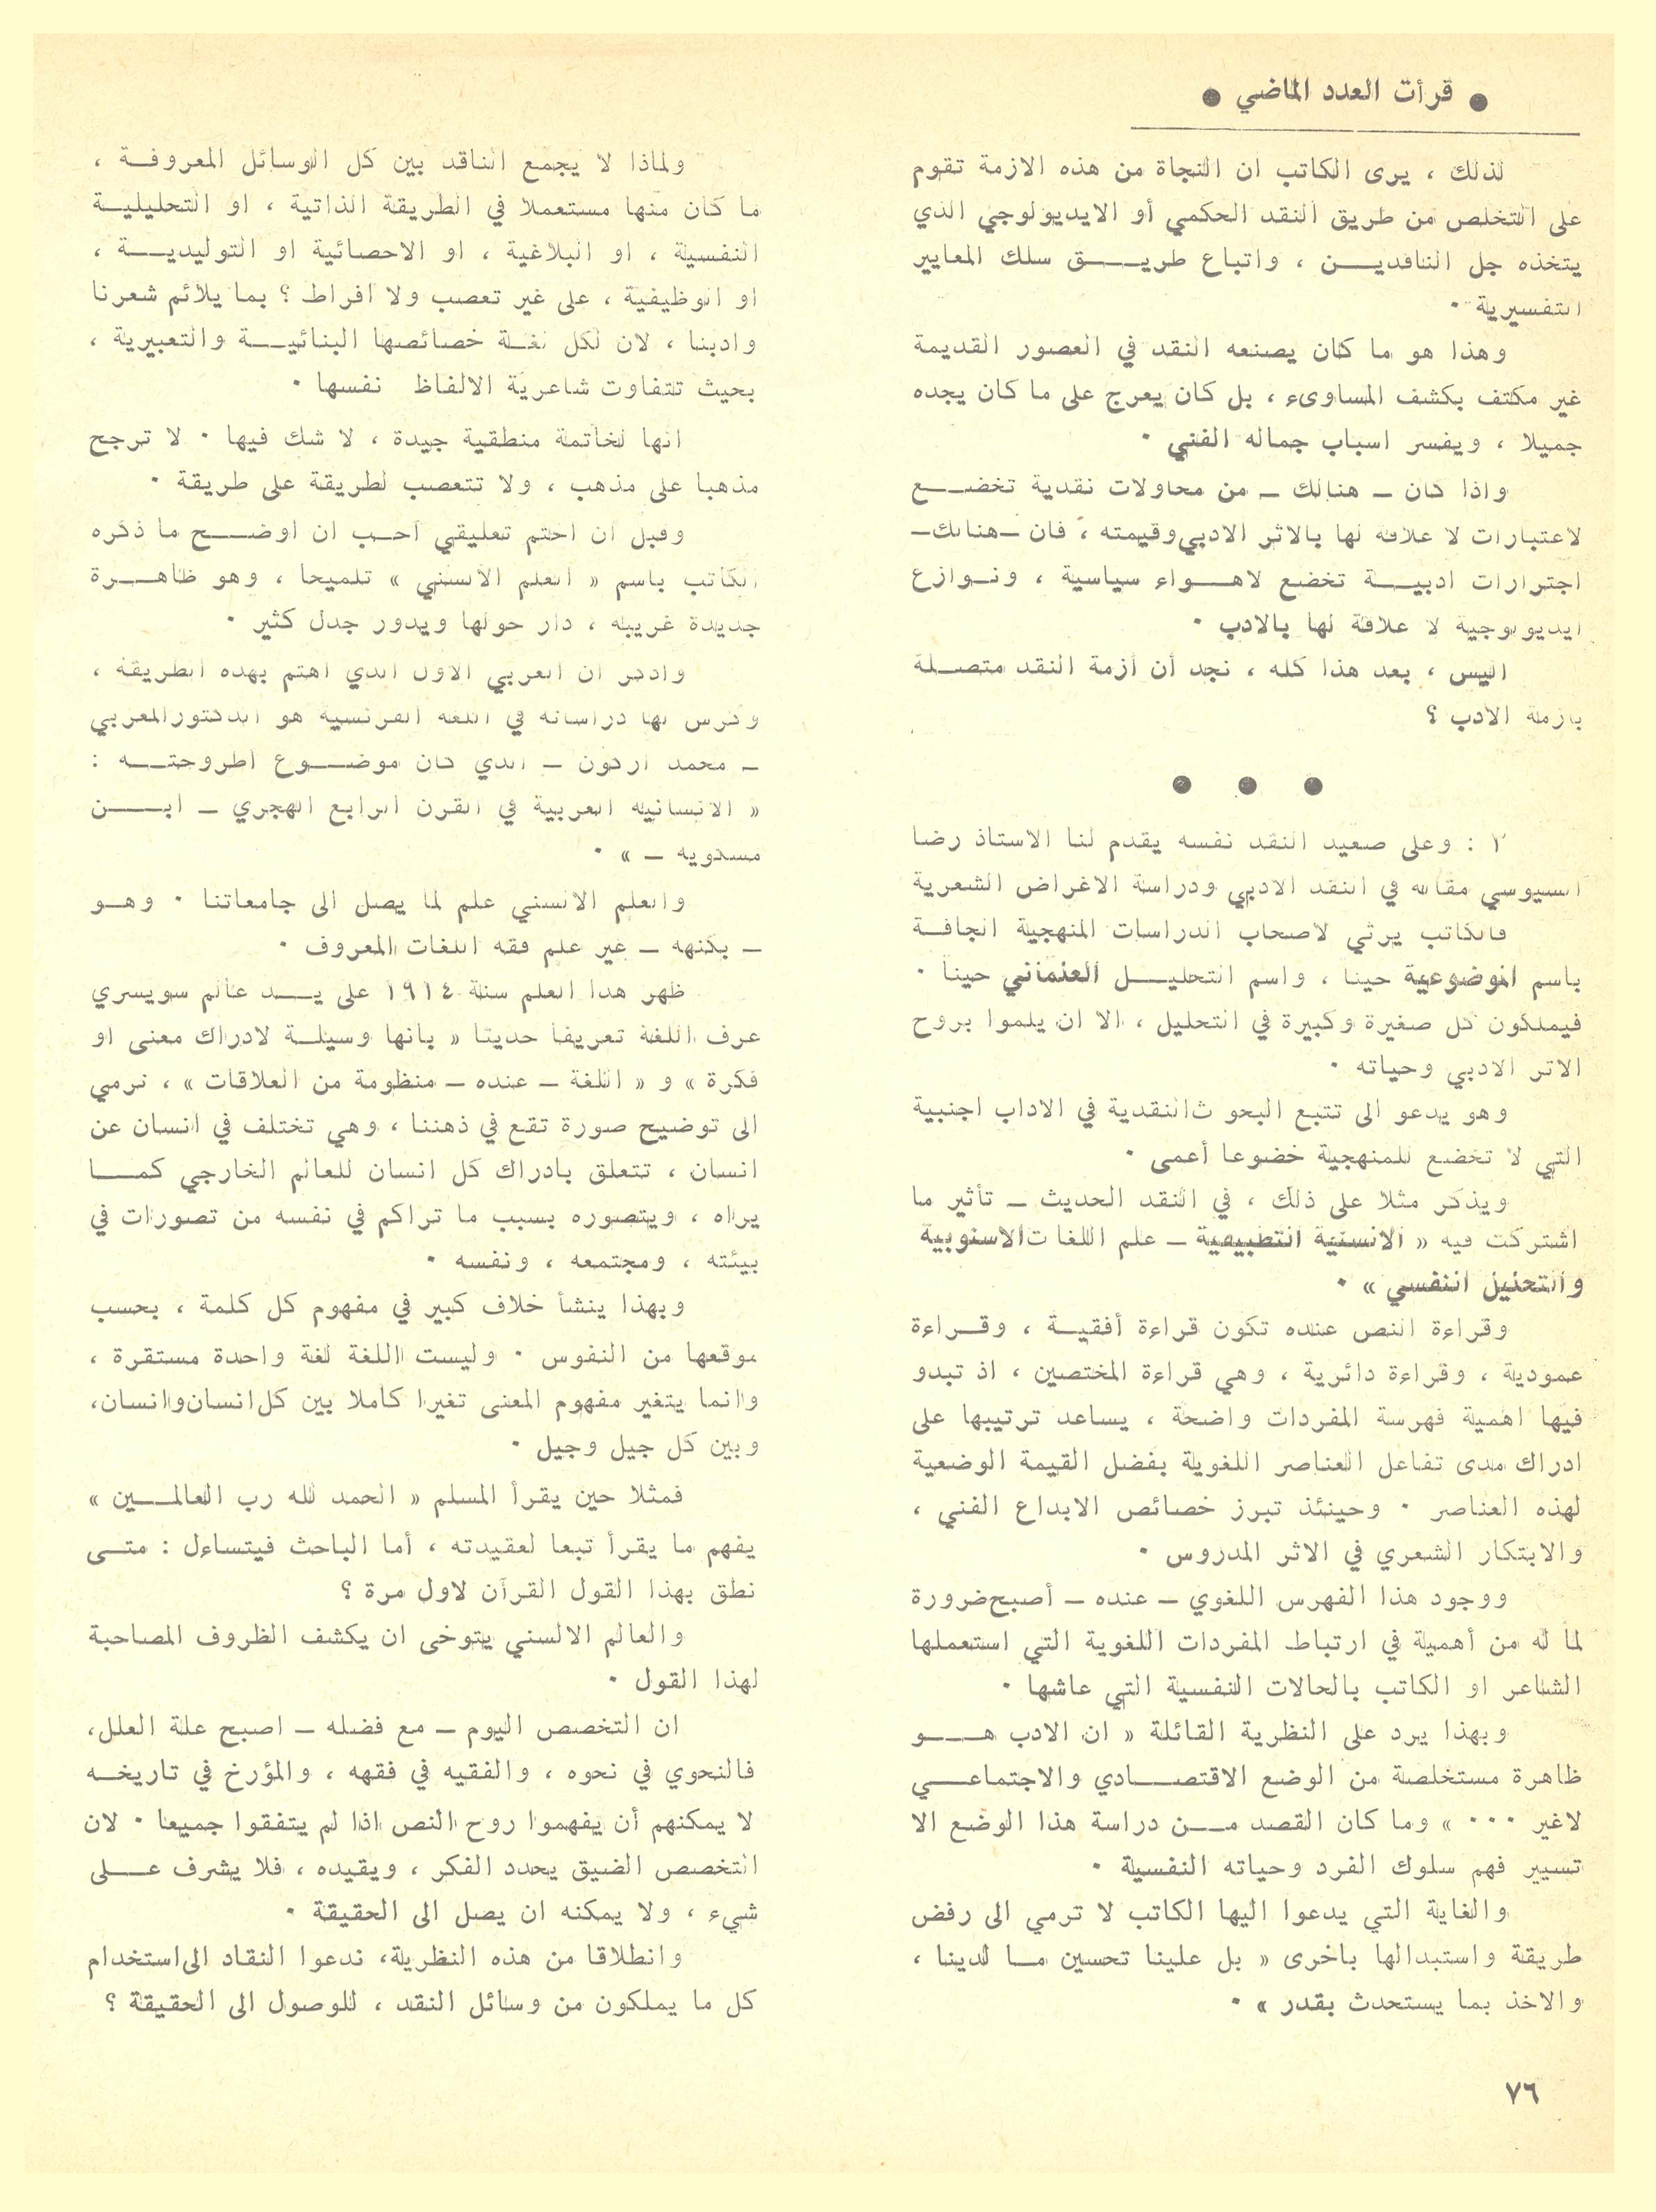 ● قرأت العدد الماضي ●
لذلك ، يرى الكاتب ان النجاة من هذه الازمة تقوم
على التخلص من طريق النقد الحكمي أو الايديولوجي الذي
يتخذه جل الناقديـــن ، واتباع طريـــق سلك المعايير
التفسيرية ٠
وهذا هو ما كان يصنعه النقد في العصور القديمة
غير مكتف بكشف المساوىء ، بل كان يعرج على ما كان يجده
جميلا ، ويفسر اسباب جماله الفني ٠
واذا كان ـ هنالك ـ من محاولات نقدية تخضـــع
لاعتبارات لا علاقة لها بالاثر الادبي وقيمته ، فان ـ هنالك ـ
اجترارات ادبيـــة تخضع لاهـــواء سياسية ، ونـوازع
ايديولوجية لا علاقة لها بالادب ٠
اليس ، بعد هذا كله ، نجد أن أزمة النقد متصـــلة
بازمة الادب ؟
● ● ●
٢ : وعلى صعيد النقد نفسه يقدم لنا الاستاذ رضا
السيوسي مقاله في النقد الادبي ودراسة الاغراض الشعرية
فالكاتب يرثي لاصحاب الدراسات المنهجية الجافـة
باسم الموضوعية حينا ، واسم التحليـــل العلماني حينا ٠
فيملكون كل صغيرة وكبيرة في التحليل ، الا ان يلموا بروح
الاثر الادبي وحياته ٠
وهو يدعو الى تتبع البحو ث النقدية في الاداب اجنبية
التي لا تخضع للمنهجية خضوعا أعمى ٠
ويذكر مثلا على ذلك ، في النقد الحديث ـ تأثير ما
اشتركت فيه « الالسنية التطبيقية ـ علم اللغات الاسلوبية
والتحليل النفسي » ٠
وقراءة النص عنده تكون قراءة أفقيـة ، وقـراءة
عمودية ، وقراءة دائرية ، وهي قراءة المختصين ، اذ تبدو
فيها اهمية فهرسة المفردات واضحة ، يساعد ترتيبها على
ادراك مدى تفاعل العناصر اللغوية بفضل القيمة الوضعية
لهذه العناصر ٠ وحينئذ تبرز خصائص الابداع الفني ،
والابتكار الشعري في الاثر المدروس ٠
ووجود هذا الفهرس اللغوي ـ عنده ـ أصبح ضرورة
لما له من أهمية في ارتباط المفردات اللغوية التي استعملها
الشاعر او الكاتب بالحالات النفسية التي عاشها ٠
وبهذا يرد على النظرية القائلة « ان الادب هـــو
ظاهرة مستخلصة من الوضع الاقتصـــادي والاجتماعـــي
لاغير ٠٠٠ » وما كان القصد مـــن دراسة هذا الوضع الا
تسيير فهم سلوك الفرد وحياته النفسية ٠
والغاية التي يدعوا اليها الكاتب لا ترمي الى رفض
طريقة واستبدالها باخرى « بل علينا تحسين مـا لدينا ،
والاخذ بما يستحدث بقدر » ٠
ولماذا لا يجمع الناقد بين كل الوسائل المعروفـة ،
ما كان منها مستعملا في الطريقة الذاتية ، او التحليليـة
النفسية ، او البلاغية ، او الاحصائية او التوليديـــة ،
او الوظيفية ، على غير تعصب ولا افراط ؟ بما يلائم شعرنا
وادبنا ، لان لكل لغـة خصائصها البنائيـــة والتعبيرية ،
بحيث تتفاوت شاعرية الالفاظ نفسها ٠
انها لخاتمة منطقية جيدة ، لا شك فيها ٠ لا ترجح
مذهبا على مذهب ، ولا تتعصب لطريقة على طريقة ٠
وقبل ان اختم تعليقي احـب ان اوضـــح ما ذكره
الكاتب باسم « العلم الالسني » تلميحا ، وهو ظاهـــرة
جديدة غريبة ، دار حولها ويدور جدل كثير ٠
واذكر ان العربي الاول الذي اهتم بهذه الطريقة ،
وكرس لها دراساته في اللغة الفرنسية هو الدكتور المغربي
ـ محمد اركون ـ الذي كان موضـــوع اطروحتـــه :
« الانسانية العربية في القرن الرابع الهجري ـ ابـــن
مسكويه ـ » ٠
والعلم الالسني علم لما يصل الى جامعاتنا ٠ وهـو
ـ بكنهه ـ غير علم فقه اللغات المعروف ٠
ظهر هذا العلم سنة ١٩١٤ على يـــد عالم سويسري
عرف اللغة تعريفا حديثا « بانها وسيلـة لادراك معنى او
فكرة » و « اللغة ـ عنده ـ منظومة من العلاقات » ، ترمي
الى توضيح صورة تقع في ذهننا ، وهي تختلف في انسان عن
انسان ، تتعلق بادراك كل انسان للعالم الخارجي كمـــا
يراه ، ويتصوره بسبب ما تراكم في نفسه من تصورات في
بيئته ، ومجتمعه ، ونفسه ٠
وبهذا ينشأ خلاف كبير في مفهوم كل كلمة ، بحسب
موقعها من النفوس ٠ وليست اللغة لغة واحدة مستقرة ،
وانما يتغير مفهوم المعنى تغيرا كاملا بين كل انسان وانسان،
وبين كل جيل وجيل ٠
فمثلا حين يقرأ المسلم « الحمد لله رب العالمـــين »
يفهم ما يقرأ تبعا لعقيدته ، أما الباحث فيتساءل : متـى
نطق بهذا القول القرآن لاول مرة ؟
والعالم الالسني يتوخى ان يكشف الظروف المصاحبة
لهذا القول ٠
ان التخصص اليوم ـ مع فضله ـ اصبح علة العلل،
فالنحوي في نحوه ، والفقيه في فقهه ، والمؤرخ في تاريخـه
لا يمكنهم أن يفهموا روح النص اذا لم يتفقوا جميعا ٠ لان
التخصص الضيق يحدد الفكر ، ويقيده ، فلا يشرف عـــلى
شيء ، ولا يمكنه ان يصل الى الحقيقة ٠
وانطلاقا من هذه النظرية، ندعوا النقاد الى استخدام
كل ما يملكون من وسائل النقد ، للوصول الى الحقيقة ؟
٧٦